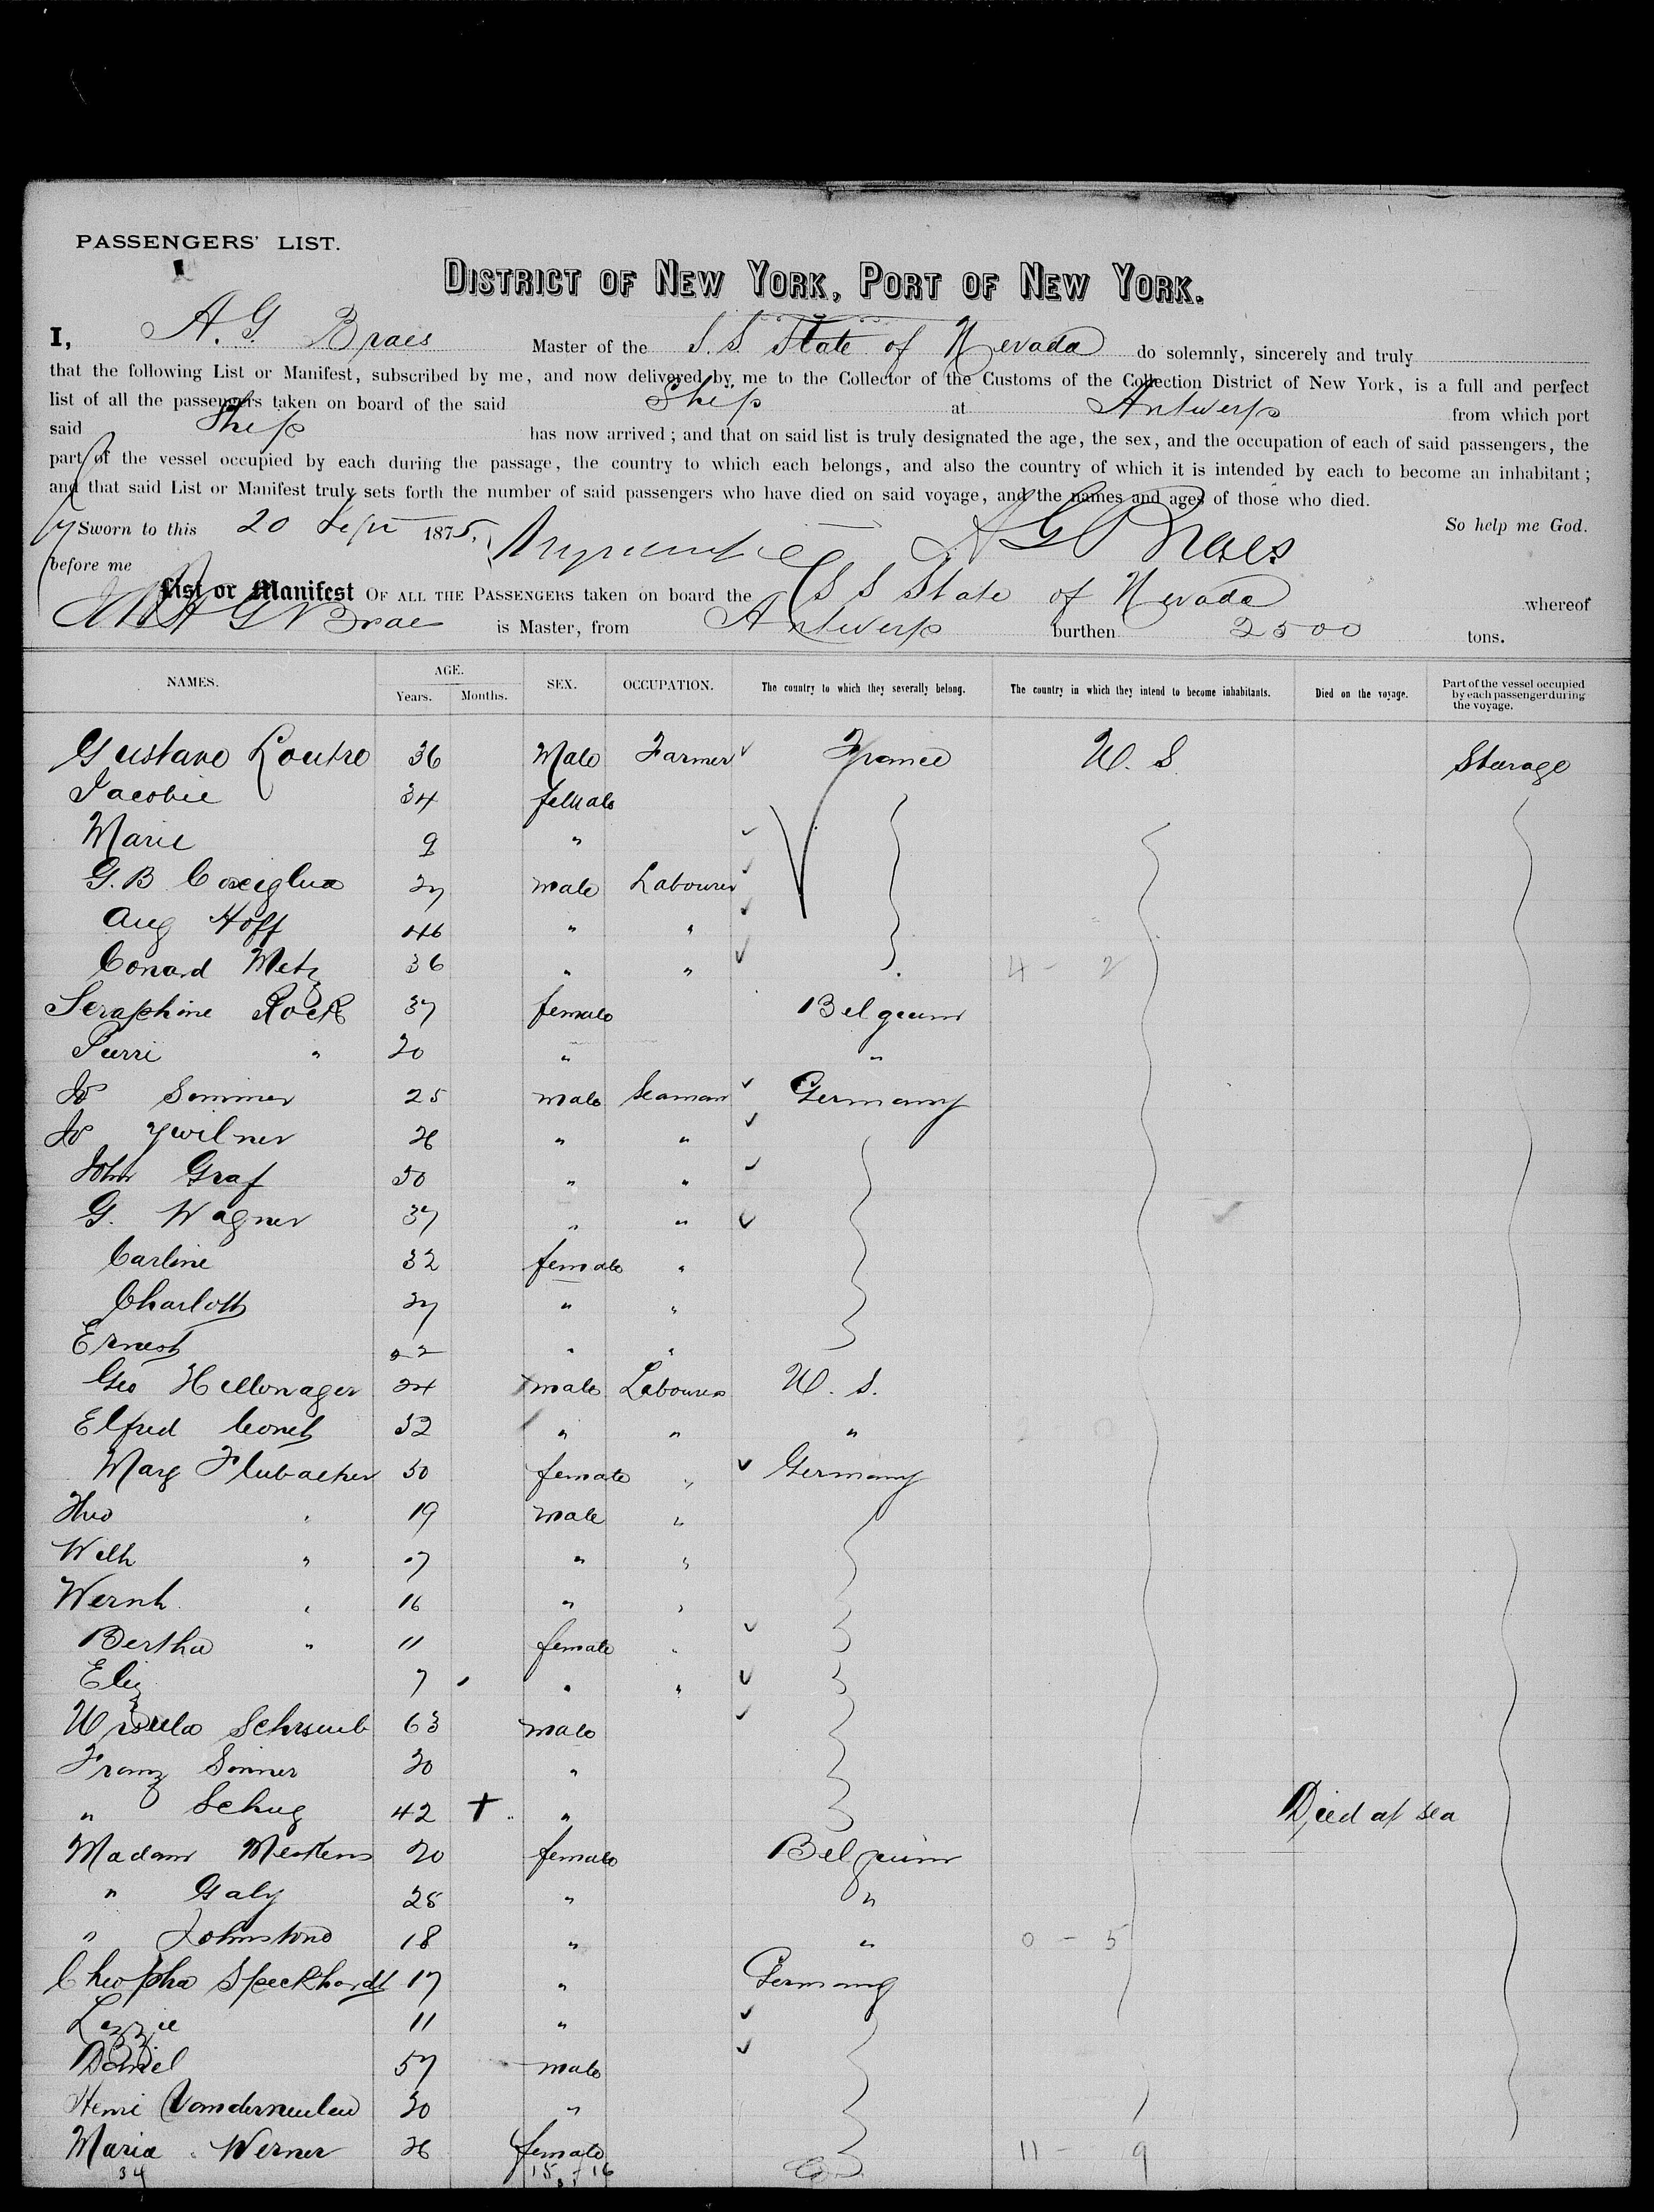 PASSENGERS' LIST.
DISTRICT OF NEW YORK, PORT OF NEW YORK.
I, A. G. Braes Master of the S. S. State of Nevada do solemnly, sincerely and truly
that the following List or Manifest, subscribed by me, and now delivered by me to the Collector of the Customs of the Collection District of New York, is a full and perfect
list of all the passengers taken on board of the said Ship at Antwerp from which port
said Ship has now arrived; and that on said list is truly designated the age, the sex, and the occupation of each of said passengers, the
part of the vessel occupied by each during the passage, the country to which each belongs, and also the country of which it is intended by each to become an inhabitant;
and that said List or Manifest truly sets forth the number of said passengers who have died on said voyage, and the names and ages of those who died.
Sworn to this 20 Sept 1875, A G Braes So help me God.
before me
List or Manifest OF ALL THE PASSENGERS taken on board the S S State of Nevada whereof
A G Brae is Master, from Antwerp burthen 2500 tons.
NAMES. AGE. Years. Months. SEX. OCCUPATION. The country to which they severally belong. The country in which they intend to become inhabitants. Died on the voyage. Part of the vessel occupied by each passenger during the voyage.
Gustave Loutre 36 Male Farmer France U. S. Sterage
Jacobie 34 female
Marie 9 "
G. B 27 male Labourer
Aug Hoff 46 " "
Conard Metz 36 " " 4 - 2
Seraphine Rock 37 female Belgeum
Pierri " 20 " "
Jo Sommer 25 male Seaman Germany
Jo Zwilner 26 " "
John Graf 50 " "
G. Wagner 37 " "
Carline 32 female "
Charlott 27 " "
Ernest 22 " "
Geo Hellonager 24 male Labourer U. S.
Elfred Conet 32 " " "
Marg Flubacher 50 female " Germany
Theo " 19 male "
Wilh " 17 " "
Wernh " 16 " "
Bertha " 11 female "
Eliz 7 " "
Ursula 63 male
Franz Sinner 20 "
" Schug 42 + " Died at sea
Madam Mertens 20 female Belgium
" Galy 28 " "
" Johnstone 18 " " 0 - 5
Cheopha Speckhardt 17 " Germany
Lizzie 11 "
Daniel 57 male
Henri Vandermeulen 30 "
Maria Werner 26 female 11 - 9
34 15 16